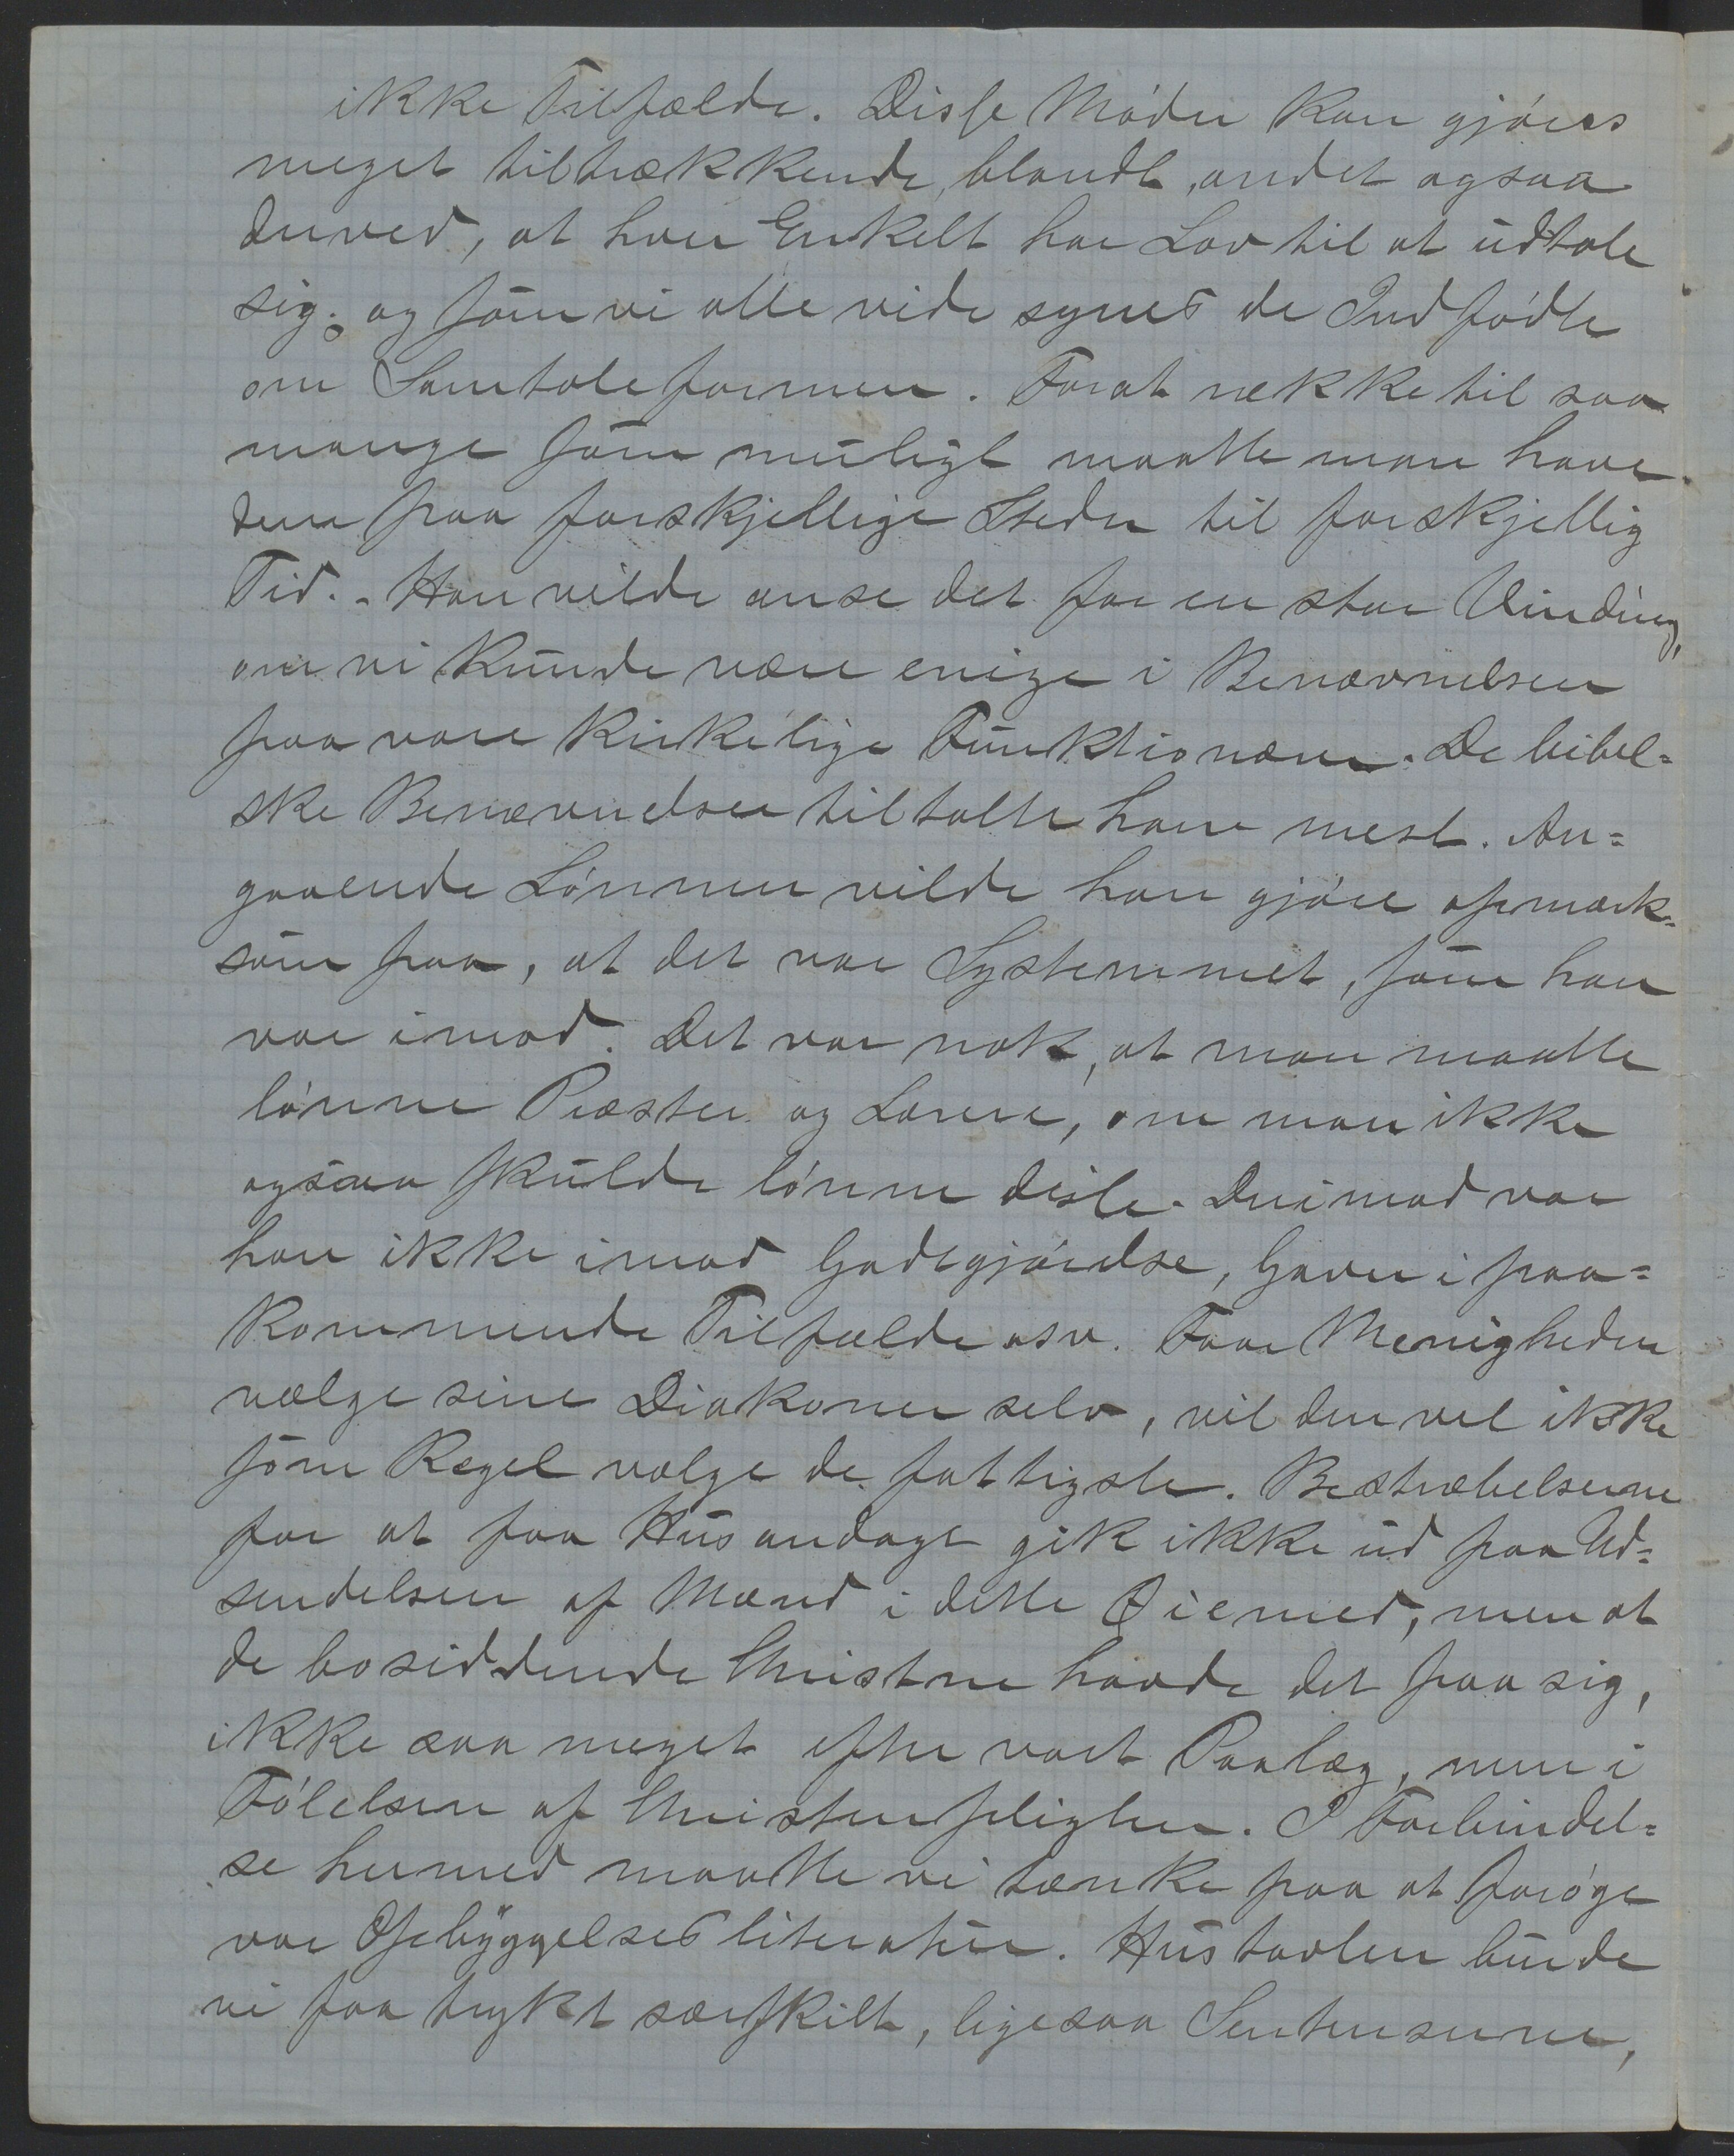 ikke Tilfælde. Disse Møder kan gjøres
meget tiltrækkende, blandt andet ogsaa
derved, at hver Enkelt har Lov til at udtale
sig; og som vi alle vide synes de Indfødte
om Samtaleformen. Forat række til saa
mange som muligt maatte man have
dem paa forskjellige Steder til forskjellig
Tid. - Han vilde anse det for en stor Vinding,
om vi kunde være enige i Benævnelsen
paa vore kirkelige Funktionærer. De bibel=
ske Benævnelser tiltalte ham mest. An=
gaaende Lønnen vilde han gjøre opmærk=
som paa, at det var Systemmet, som han
var imod. Det var nok, at man maatte
lønne Præster og Lærere, om man ikke
ogsaa skulde lønne disse. Derimod var
han ikke imod Godtgjørelse, Gaver i paa=
kommende Tilfælde osv. Faar Menigheden
vælge sine Diakoner selv, vil den vel ikke
som Regel vælge de fattigste. Bestræbelserne
for at faa Husandagt gik ikke ud paa Ud=
sendelsen af Mænd i dette Øiemed, men at
de bosiddende Christne havde det paa sig,
ikke saa meget efter vort Paalæg, men i
Følelsen af Christenpligten. I Forbindel=
se hermed maatte vi tænke paa at forøge
vor Opbyggelsesliteratur. Hustavlen burde
vi faa trykt særskilt, ligesaa Sentenserne,